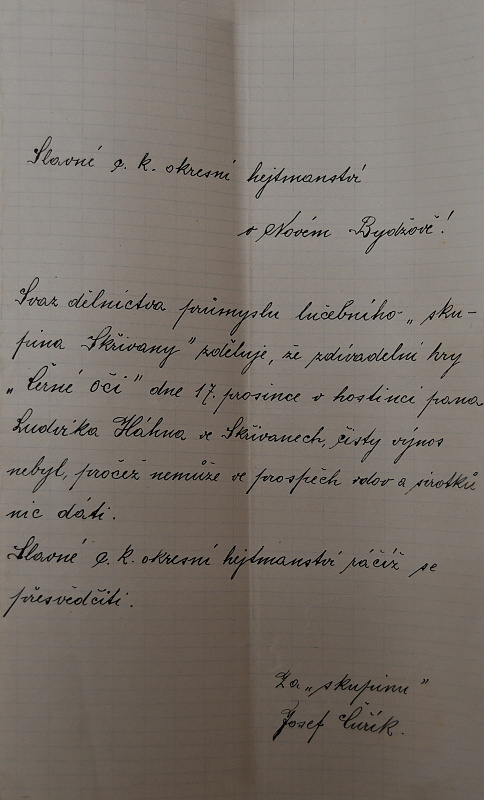 Slavné c. k. okresní hejtmanství
v Novém Bydžově!
Svaz dělnictva průmyslu lučebního „sku-
pina Skřivany" zděluje, že zdivadelní hry
„Černé Oči" dne 17. prosince v hostinci pana
Ludvíka Háhna ve Skřivanech, čistý výnos
nebyl, pročež nemůže ve prospěch vdov a sirotků
nic dáti.
Slavné c. k. okresní hejtmanství ráčiž se
přesvědčiti.
Za „skupinu"
Josef Čiřík.